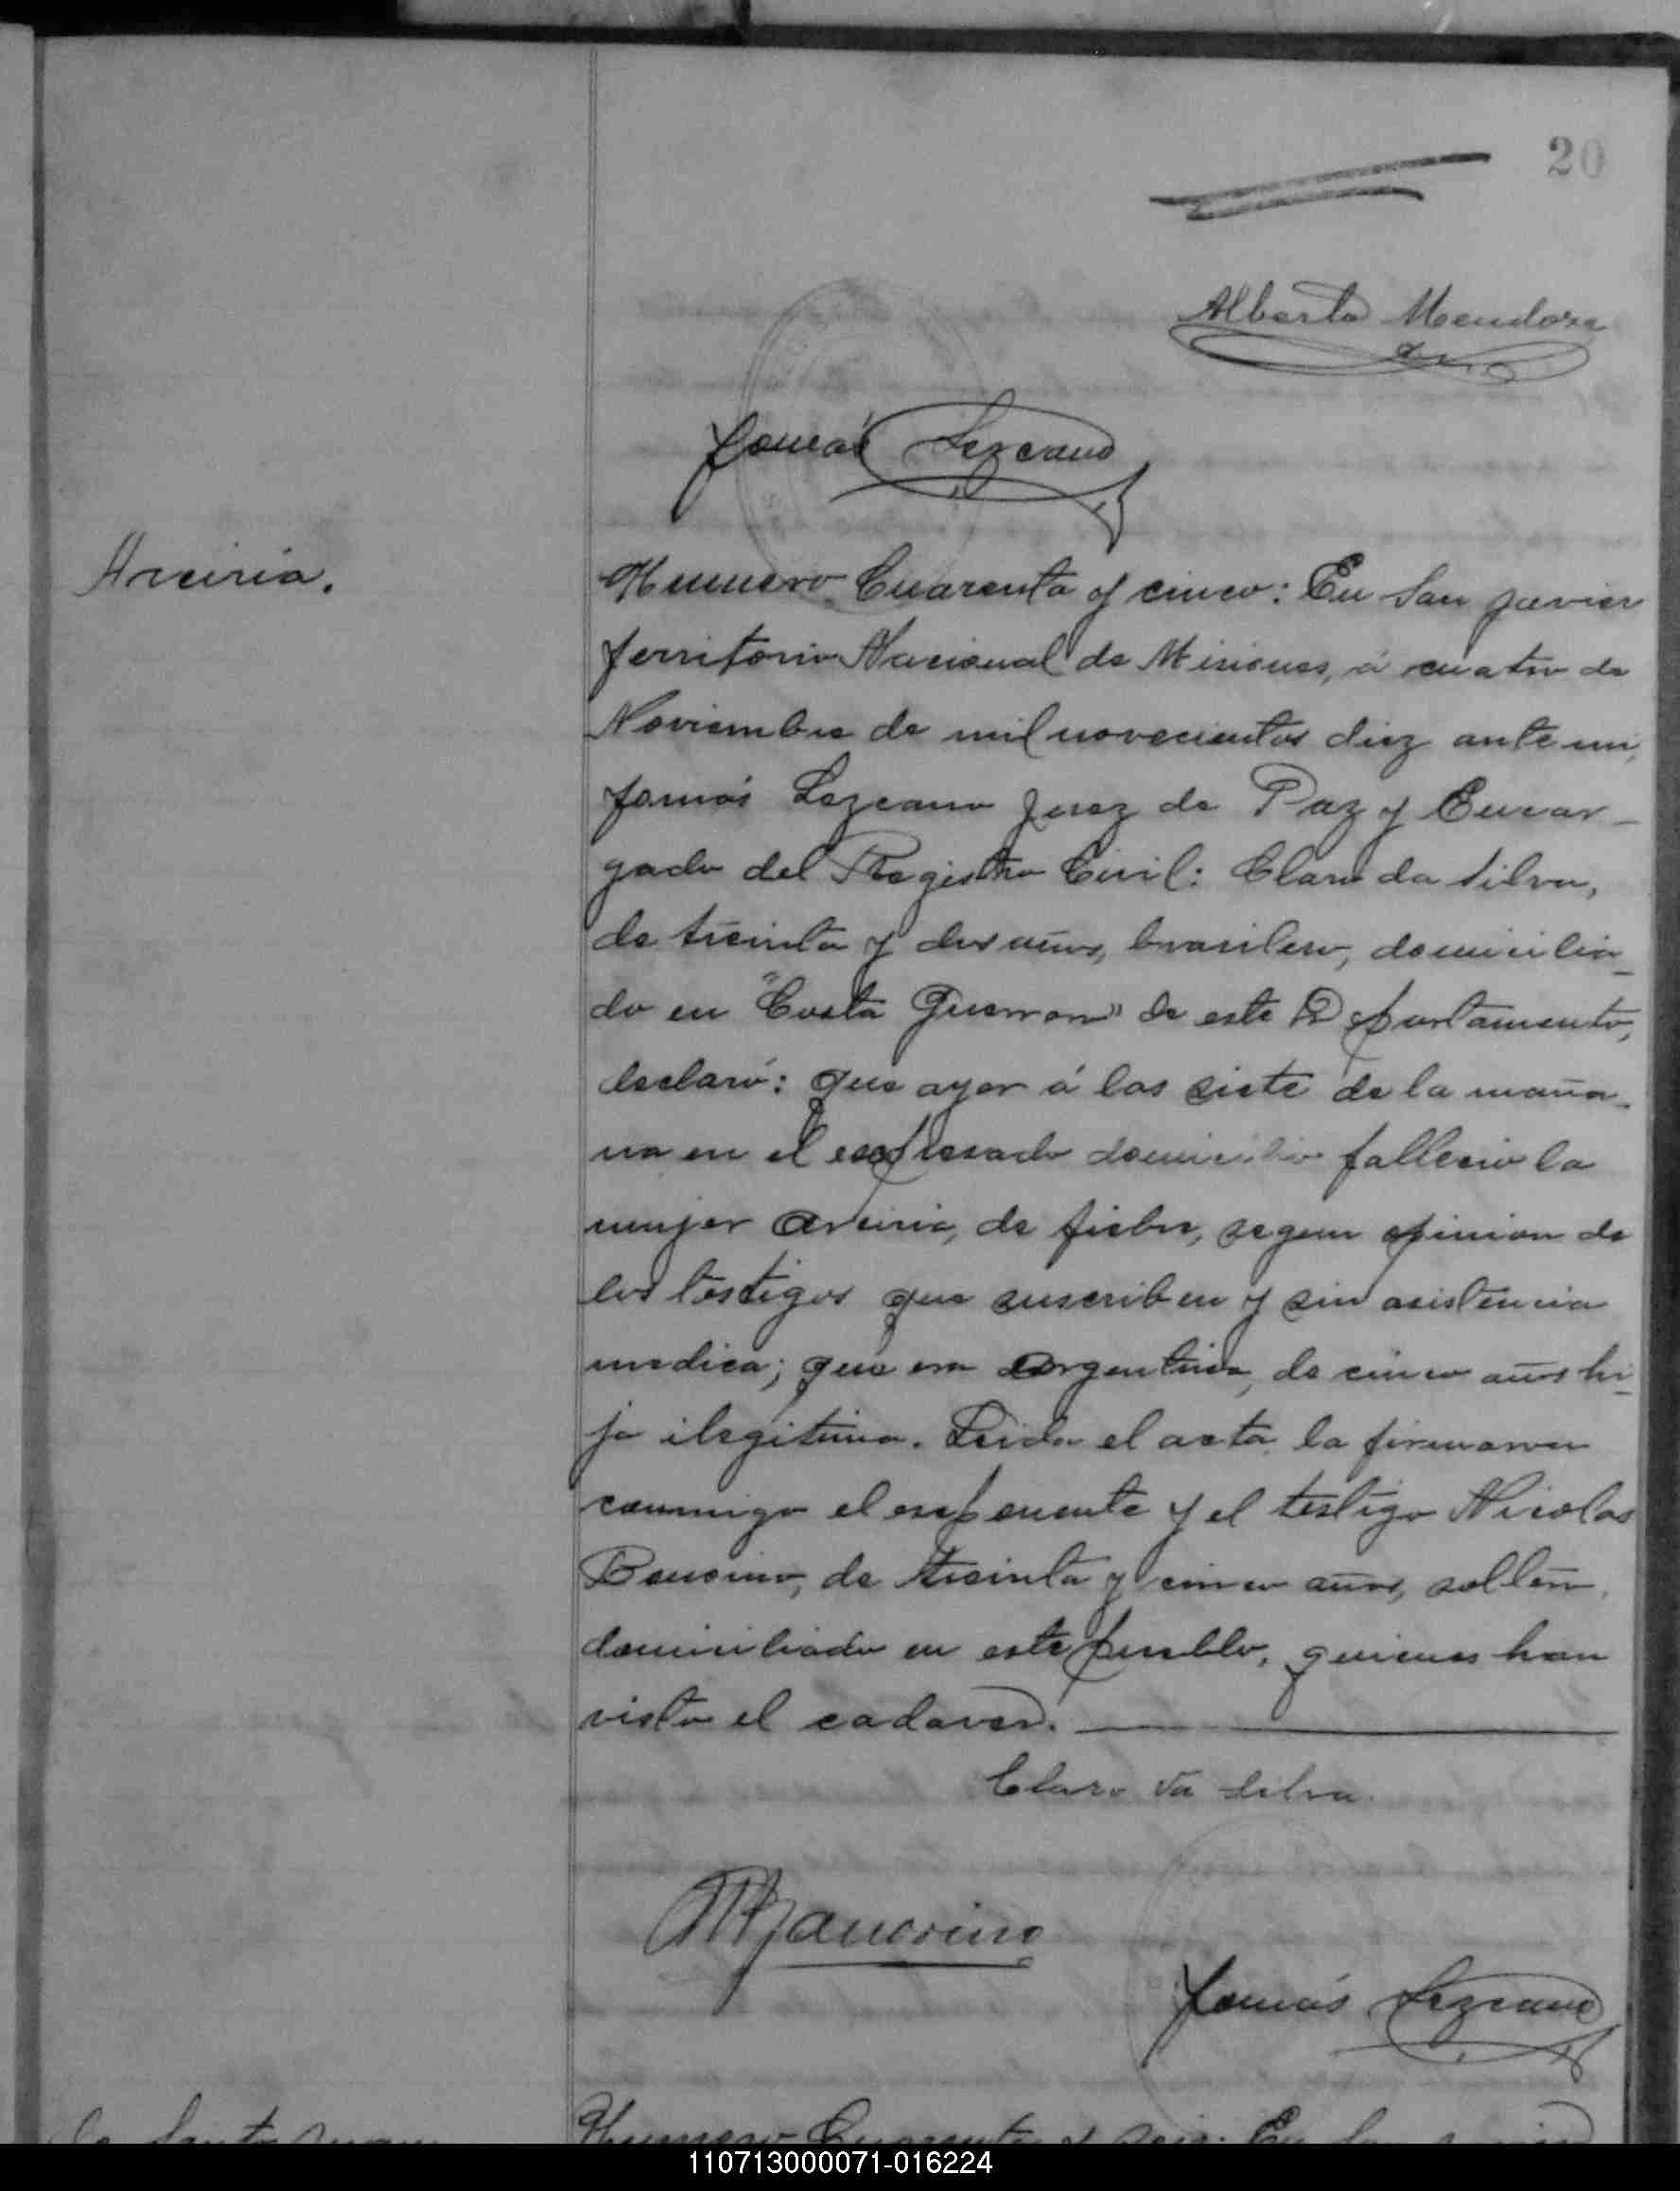 20
Alberto Mendoza
Tomás Lezcano
Arciria.
Numero Cuarenta y cinco: En San Javier
Territorio Nacional de Misiones, á cuatro de
Noviembre de mil novecientos diez ante mi,
Tomás Lezcano Juez de Paz y Encar-
gado del Registro Civil: Claro da Silva,
de treinta y dos años, brasilero, domicilia-
do en "Costa Guerrero" de este Departamento,
declaró: que ayer á las siete de la maña-
na en el expresado domicilio fallecio la
mujer Arciria, de fiebre, segun opinion de
los testigos que suscriben y sin asistencia
medica; que era Argentina, de cinco años hi-
ja ilegitima. Leida el acta la firmaron
conmigo el exponente y el testigo Nicolas
de treinta y cinco años, soltero,
domiciliado en este pueblo, quienes han
visto el cadaver.
Claro da Silva
Tomás Lezcano
Numero Cuarenta y seis: En
110713000071-016224